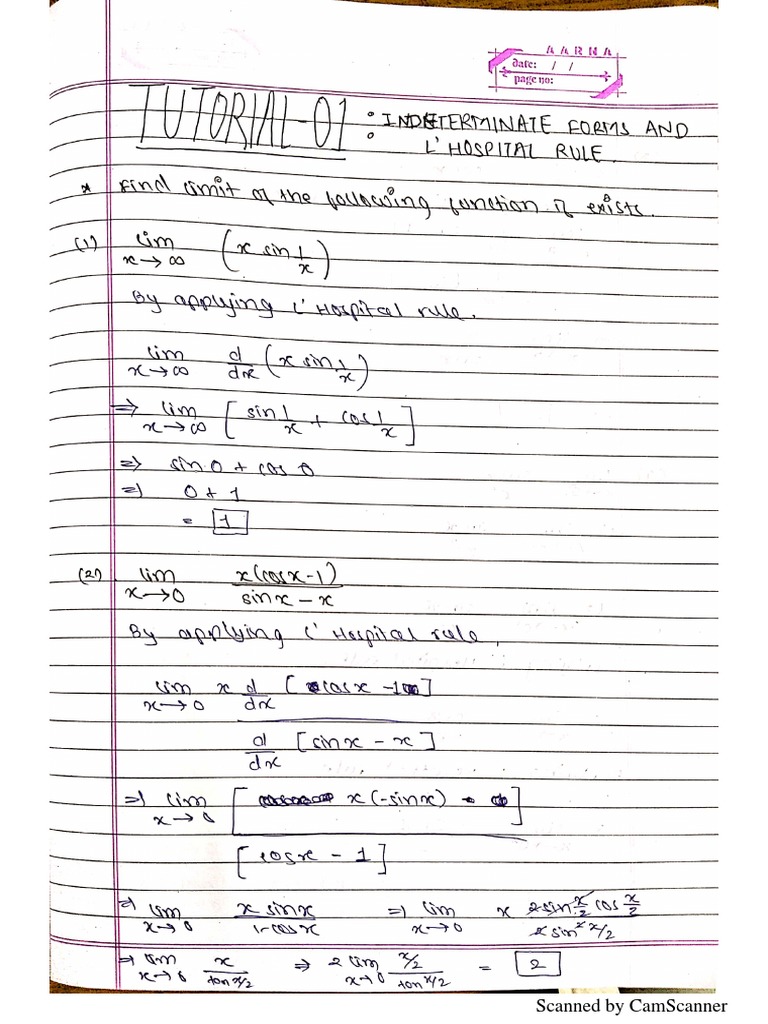 AARNA
date: / /
page no:
TUTORIAL-01 : INDETERMINATE FORMS AND
L'HOSPITAL RULE.
* Find limit of the following function if exists.
(1) lim x→∞ (x sin 1/x)
By applying L'Hospital rule.
lim x→∞ d/dx (x sin 1/x)
⇒ lim x→∞ [sin 1/x + cos 1/x]
⇒ sin 0 + cos 0
⇒ 0 + 1
= 1
(2) lim x→0 x(cosx-1)/sinx-x
By applying L'Hospital rule,
lim x→0 x d/dx [cosx -1]
d/dx [sinx - x]
⇒ lim x→0 [x(-sinx) -]
[cosx - 1]
⇒ lim x→0 x sinx/1-cosx ⇒ lim x→0 x 2sin x/2 cos x/2 / 2 sin² x/2
⇒ lim x→0 x/tan x/2 ⇒ 2 lim x→0 x/2 / tan x/2 = 2
Scanned by CamScanner